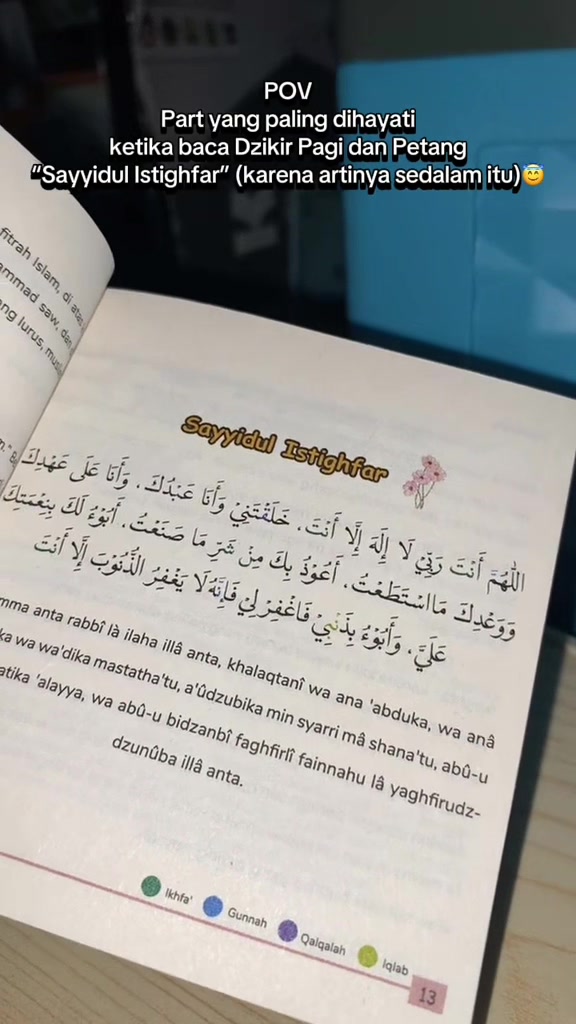 POV
Part yang paling dihayati
ketika baca Dzikir Pagi dan Petang
“Sayyidul Istighfar” (karena artinya sedalam itu)😇
fitrah Islam, di atas
ammad saw, dan
ang lurus, mus
Sayyidul Istighfar
اَللّٰهُمَّ أَنْتَ رَبِّيْ لَا إِلٰهَ إِلَّا أَنْتَ، خَلَقْتَنِيْ وَأَنَا عَبْدُكَ، وَأَنَا عَلَى عَهْدِكَ
وَوَعْدِكَ مَااسْتَطَعْتُ، أَعُوْذُ بِكَ مِنْ شَرِّ مَا صَنَعْتُ، أَبُوْءُ لَكَ بِنِعْمَتِكَ
عَلَيَّ، وَأَبُوْءُ بِذَنْبِيْ فَاغْفِرْ لِيْ فَإِنَّهُ لَا يَغْفِرُ الذُّنُوْبَ إِلَّا أَنْتَ
mma anta rabbî là ilaha illâ anta, khalaqtanî wa ana 'abduka, wa anâ
ka wa wa'dika mastatha'tu, a'ûdzubika min syarri mâ shana'tu, abû-u
atika 'alayya, wa abû-u bidzanbî faghfirlî fainnahu lâ yaghfirudz-
dzunûba illâ anta.
Ikhfa' Gunnah Qalqalah Iqlab
13